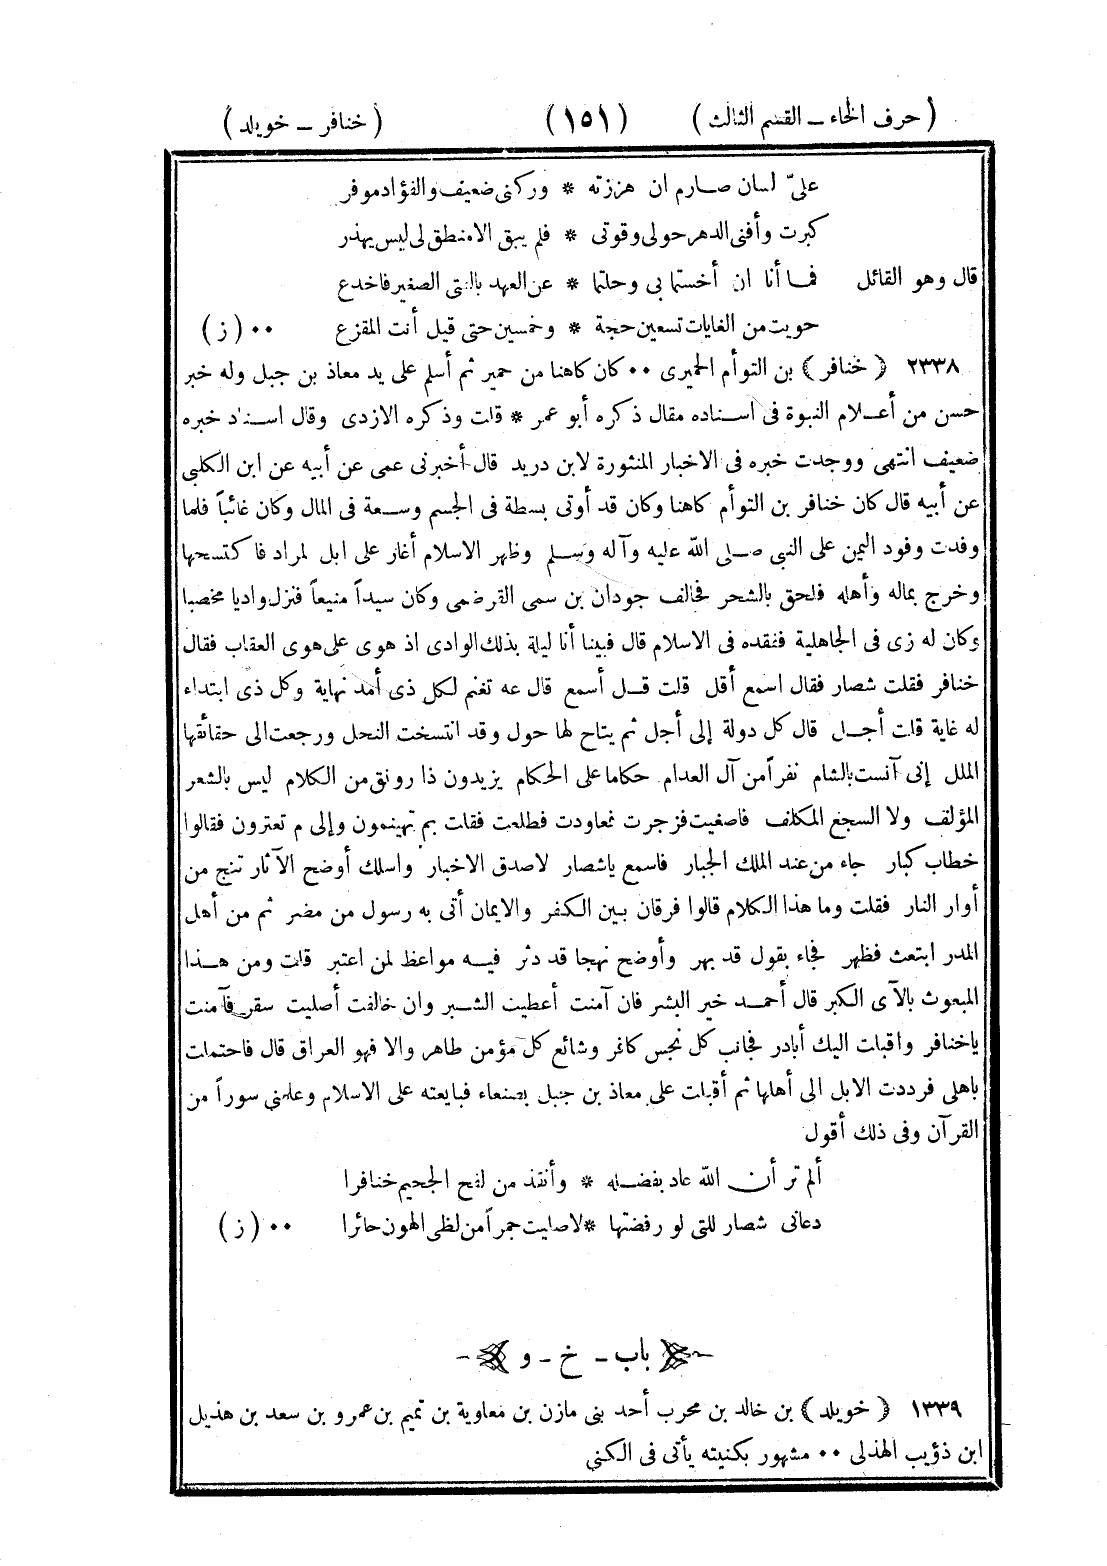 ( حرف الخاء ــ القسم الثالث ) ( ١٥١ ) ( خنافر ــ خويلد )
علىّ لسان صارم ان هززته * وركنى ضعيف والفؤاد موفر
كبرت وأفنى الدهر حولى وقوتى * فلم يبق الا منطق لى ليس يهذر
قال وهو القائل فما أنا ان أخستما بى وحلتما * عن العهد بالنتى الصغير فاخدع
حويت من الغايات تسعين حجة * وخمسين حتى قيل أنت المقزع ٠٠ ( ز )
٢٣٣٨ ( خنافر ) بن التوأم الحميرى ٠٠ كان كاهنا من حمير ثم أسلم على يد معاذ بن جبل وله خبر
حسن من أعلام النبوة فى اسناده مقال ذكره أبو عمر * قلت وذكره الازدى وقال اسناد خبره
ضعيف انتهى ووجدت خبره فى الاخبار المنثورة لابن دريد قال أخبرنى عمى عن أبيه عن ابن الكلبى
عن أبيه قال كان خنافر بن التوأم كاهنا وكان قد أوتى بسطة فى الجسم وسعة فى المال وكان غائباً فلما
وفدت وفود اليمن على النبى صلى الله عليه وآله وسلم وظهر الاسلام أغار على ابل لمراد فاكتسحها
وخرج بماله وأهله فلحق بالشحر فخالف جودان بن سمى القرضمى وكان سيداً منيعاً فنزل واديا مخصبا
وكان له زى فى الجاهلية ففقده فى الاسلام قال فبينا أنا ليلة بذلك الوادى اذ هوى على هوى العقاب فقال
خنافر فقلت شصار فقال اسمع أقل قلت قل أسمع قال عه تغنم لكل ذى أمد نهاية وكل ذى ابتداء
له غاية قلت أجل قال كل دولة إلى أجل ثم يتاح لها حول وقد انتسخت النحل ورجعت الى حقائقها
الملل إنى آنست بالشام نفراً من آل العدام حكاما على الحكام يزيدون ذا رونق من الكلام ليس بالشعر
المؤلف ولا السجع المكلف فاصغيت فزجرت فعاودت فطلعت فقلت بم تهينمون وإلى م تعترون فقالوا
خطاب كبار جاء من عند الملك الجبار فاسمع ياشصار لاصدق الاخبار واسلك أوضح الآثار تنج من
أوار النار فقلت وما هذا الكلام قالوا فرقان بين الكفر والايمان أتى به رسول من مضر ثم من أهل
المدر ابتعث فظهر فجاء بقول قد بهر وأوضح نهجا قد دثر فيه مواعظ لمن اعتبر قلت ومن هذا
المبعوث بالآى الكبر قال أحمد خير البشر فان آمنت أعطيت الشبر وان خالفت أصليت سقر فآمنت
ياخنافر واقبلت اليك أبادر فجانب كل نجس كافر وشائع كل مؤمن طاهر والا فهو العراق قال فاحتملت
باهلى فرددت الابل الى أهلها ثم أقبلت على معاذ بن جبل بصنعاء فبايعته على الاسلام وعلمنى سوراً من
القرآن وفى ذلك أقول
ألم تر أن الله عاد بفضله * وأنقذ من لفح الجحيم خنافرا
دعانى شصار للتى لو رفضتها * لاصليت جمراً من لظى الهون حائرا ٠٠ ( ز )
باب ــ خ ــ و
١٣٣٩ ( خويلد ) بن خالد بن محرب أحد بنى مازن بن معاوية بن تميم بن عمرو بن سعد بن هذيل
ابن ذؤيب الهذلى ٠٠ مشهور بكنيته يأتى فى الكنى